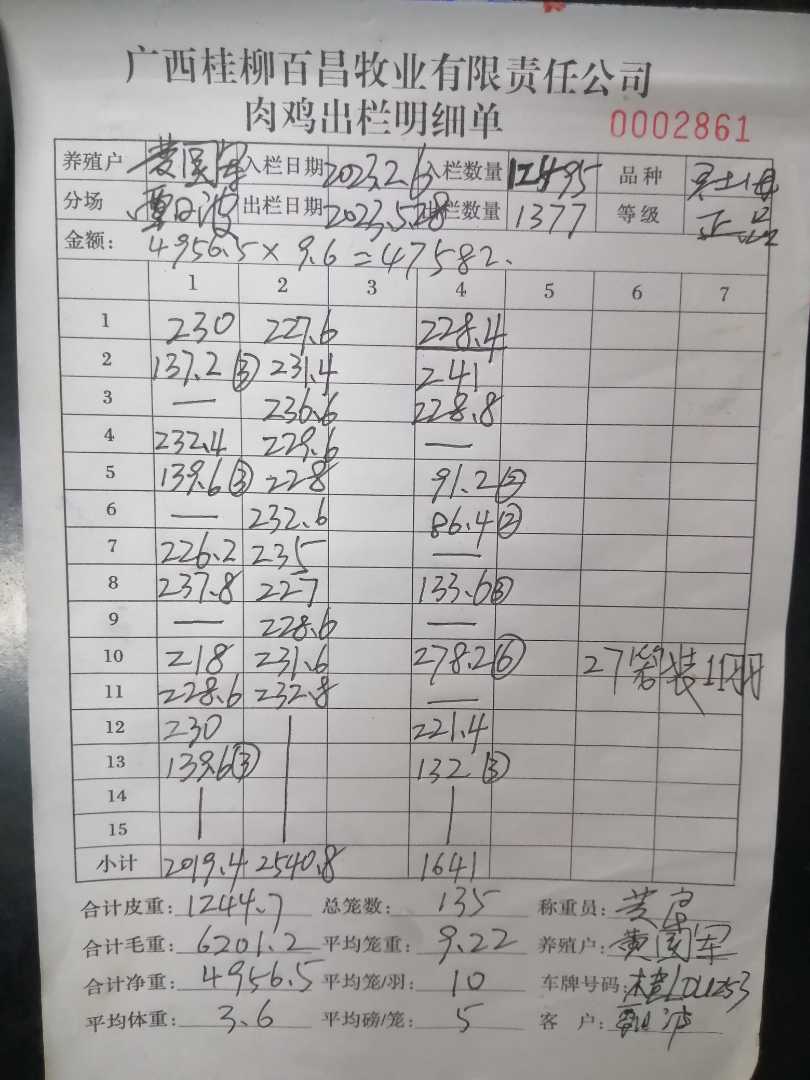 广西桂柳百昌牧业有限责任公司
肉鸡出栏明细单 0002861
养殖户 黄国军 入栏日期 2023.2.6 入栏数量 12495 品种
分场 出栏日期 2023.5.28 出栏数量 1377 等级 正品
金额: 4956.5×9.6=47582.
1 2 3 4 5 6 7
1 230 227.6 228.4
2 137.2③ 231.4 241
3 — 236.6 228.8
4 232.4 229.6 —
5 139.6③ 228 91.2②
6 — 232.6 86.4②
7 226.2 235 —
8 237.8 227 133.6③
9 — 228.6 —
10 218 231.6 278.2⑥ 27 装11羽
11 228.6 232.8 —
12 230 221.4
13 139.6③ 132③
14
15
小计 2019.4 2540.8 1641
合计皮重: 1244.7 总笼数: 135 称重员:
合计毛重: 6201.2 平均笼重: 9.22 养殖户: 黄国军
合计净重: 4956.5 平均笼/羽: 10 车牌号码:
平均体重: 3.6 平均磅/笼: 5 客户: